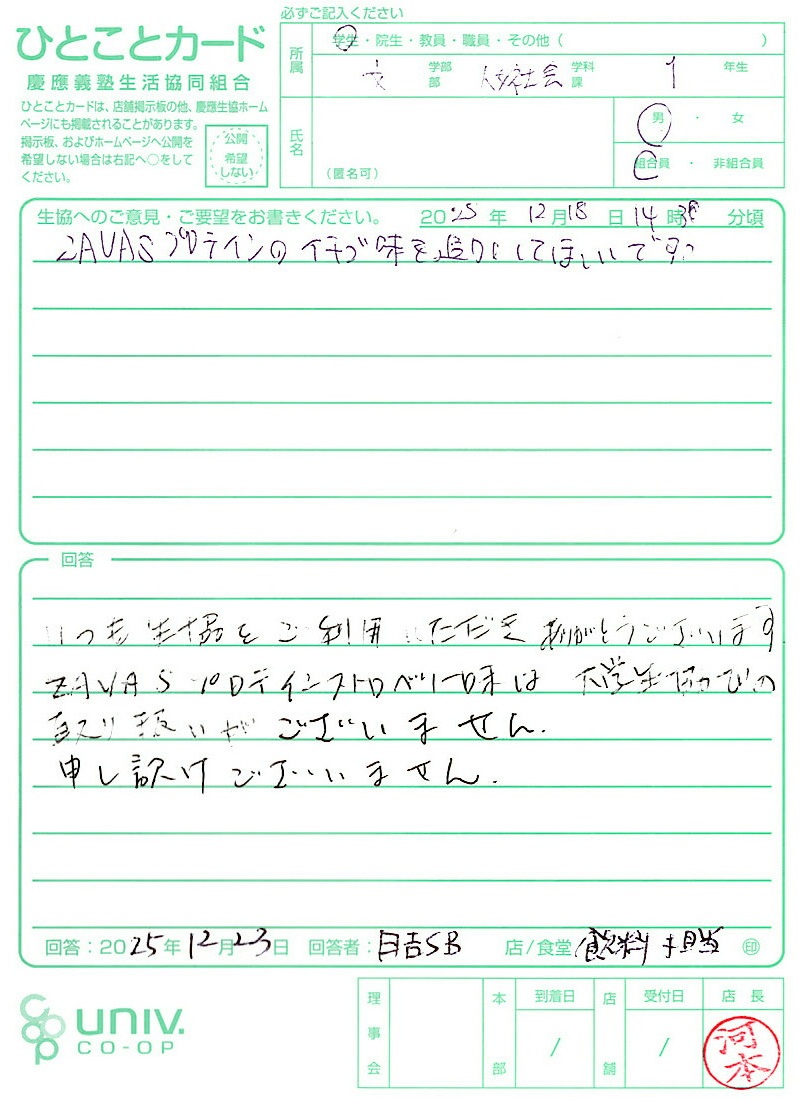 必ずご記入ください
ひとことカード
慶應義塾生活協同組合
ひとことカードは、店舗掲示板の他、慶應生協ホーム
ページにも掲載されることがあります。
掲示板、およびホームページへ公開を
希望しない場合は右記へ○をして
ください。
公開
希望
しない
所属
学生・院生・教員・職員・その他（　　）
文 学部 人文社会 学科 1 年生
部 課
氏名
（匿名可）
男・女
組合員・非組合員
生協へのご意見・ご要望をお書きください。 2025年 12月18日 14時38分頃
ZAVASプロテインのイチゴ味を追加してほしいです。
回答
いつも生協をご利用いただきありがとうございます。
ZAVASプロテインストロベリー味は 大学生協での
取り扱いがございません.
申し訳けございません.
回答：2025年12月23日 回答者：日吉SB 店/食堂 飲料担当 印
UNIV.
CO-OP
理事会
本部
到着日
/
店舗
受付日
/
店長
河本